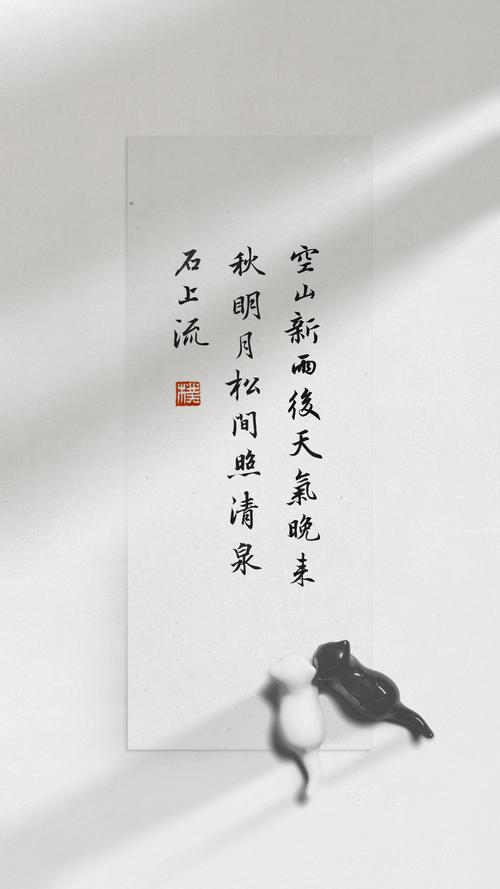 空山新雨後天氣晚来
秋明月松間照清泉
石上流
樸